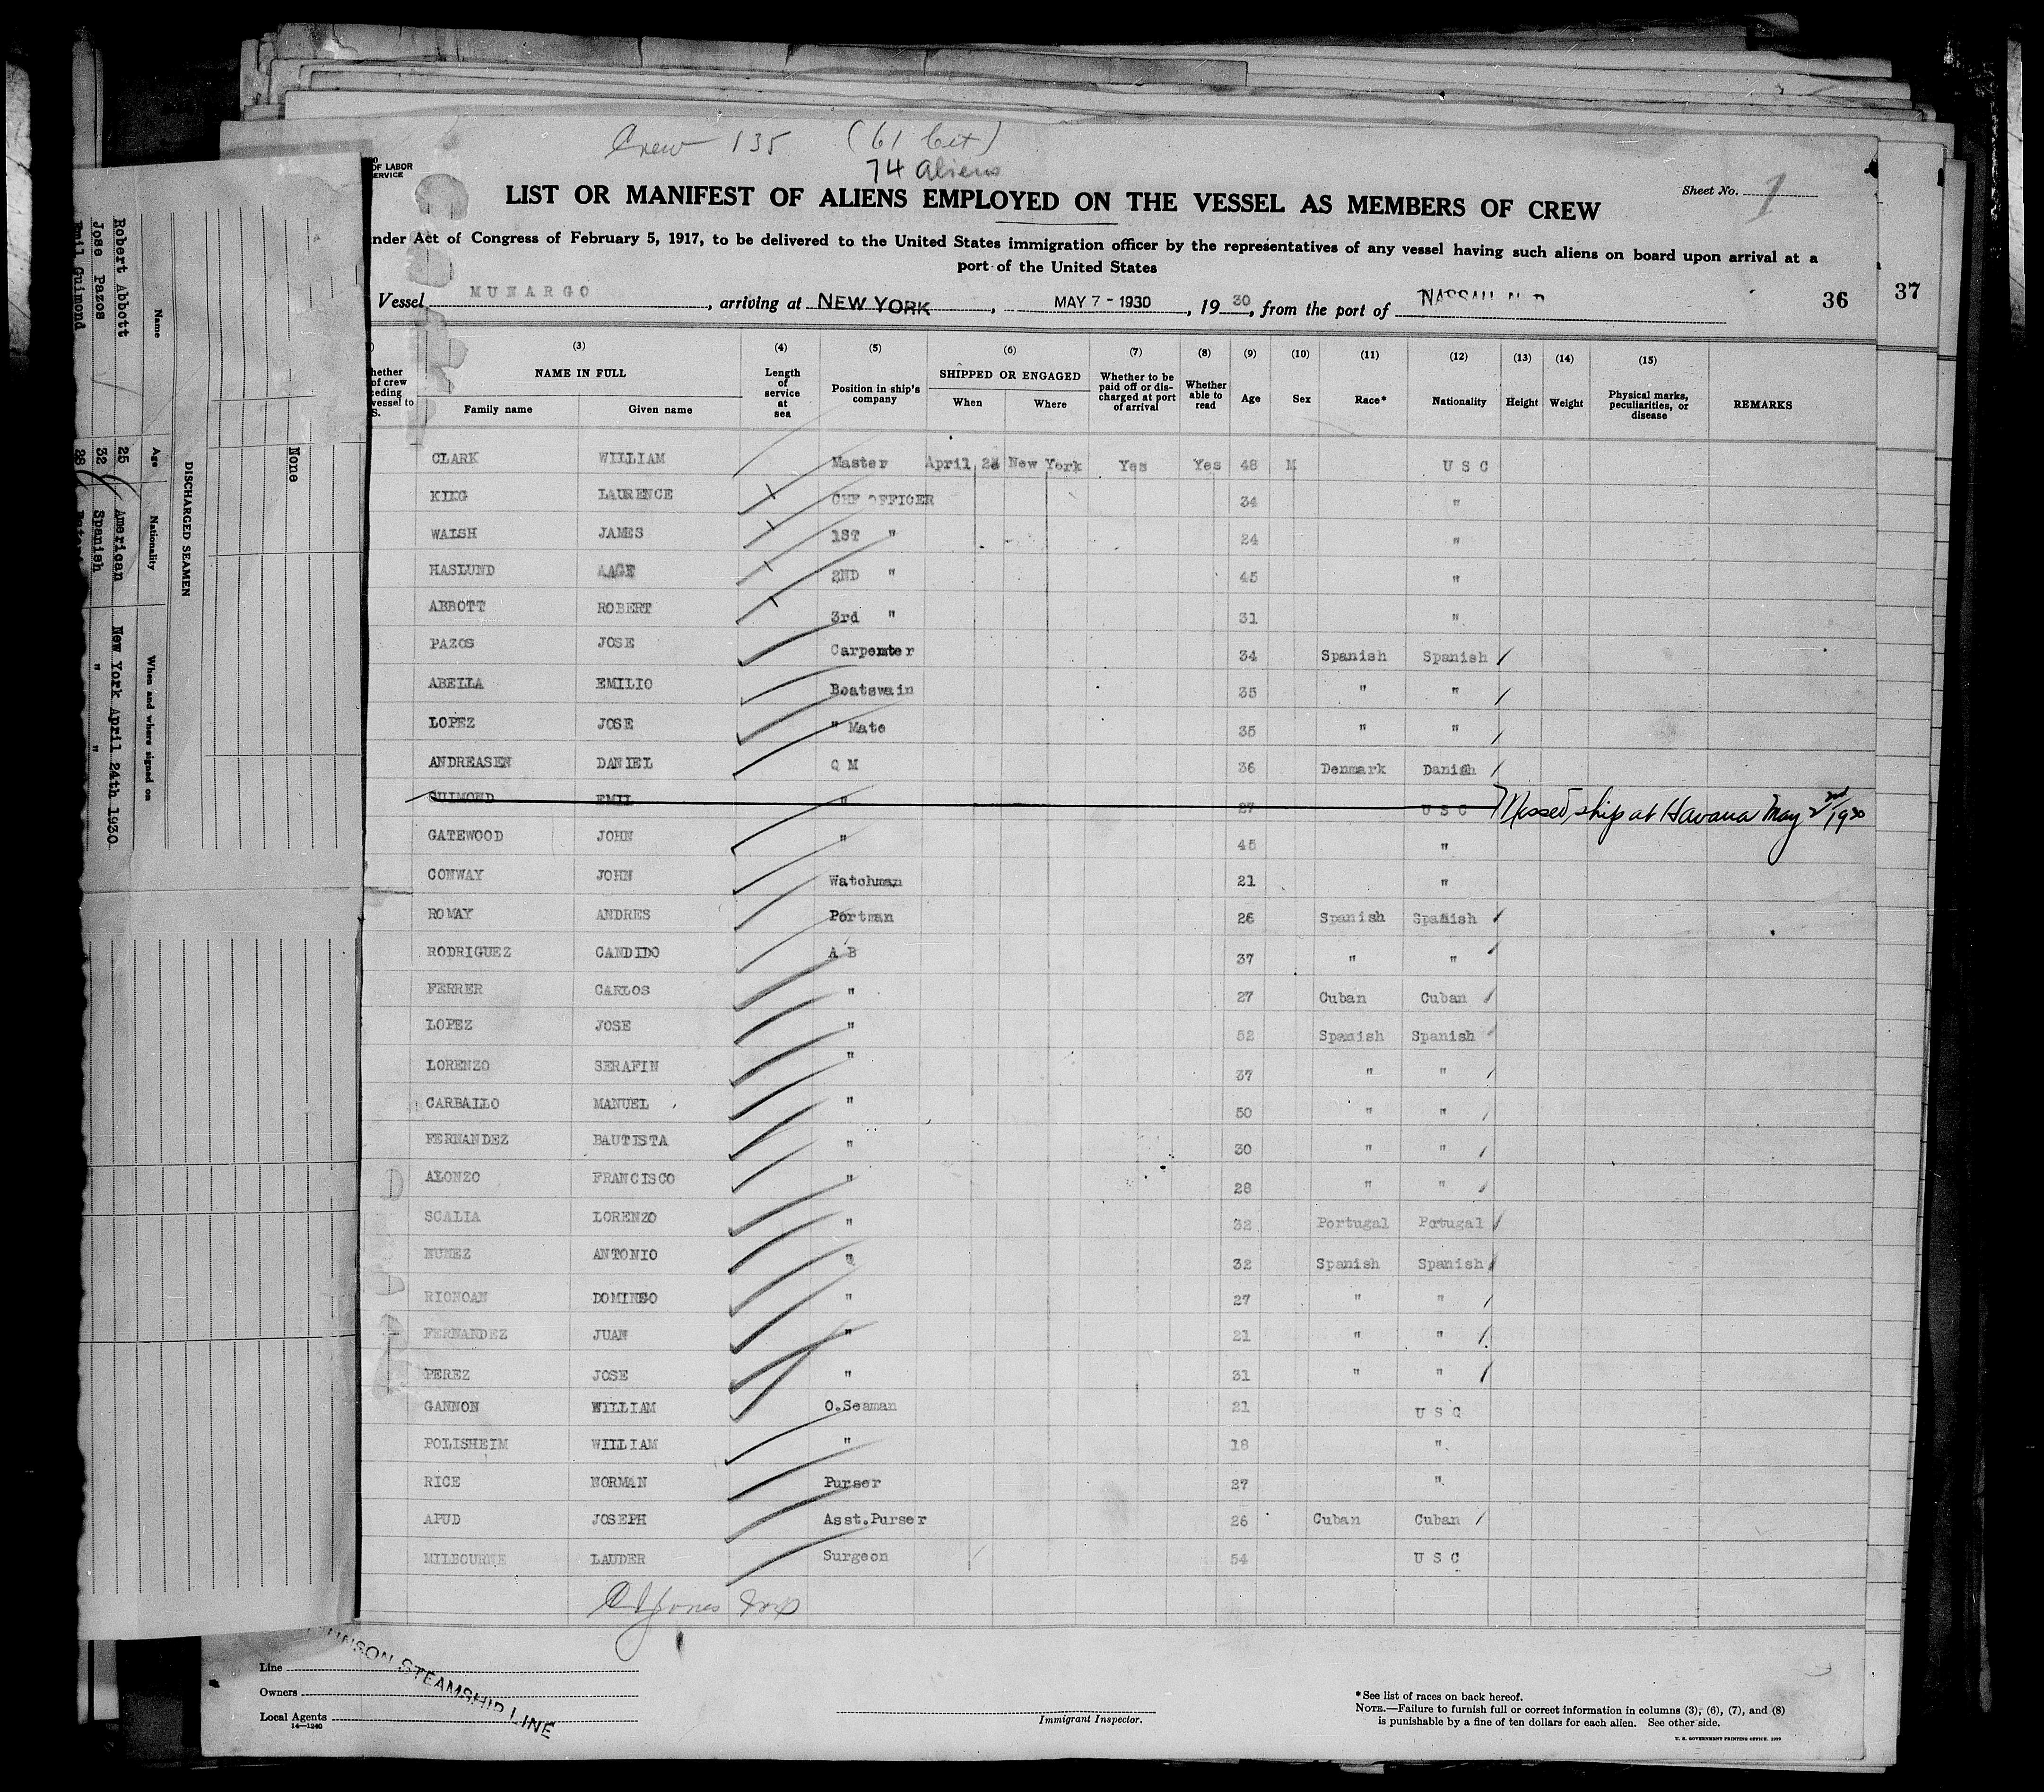 Crew 135 (61 Cit)
74 Aliens
OF LABOR
SERVICE
Sheet No. 1
LIST OR MANIFEST OF ALIENS EMPLOYED ON THE VESSEL AS MEMBERS OF CREW
nder Act of Congress of February 5, 1917, to be delivered to the United States immigration officer by the representatives of any vessel having such aliens on board upon arrival at a
port of the United States
Vessel MUNARGO, arriving at NEW YORK, MAY 7 - 1930, 19 30, from the port of NASSAU N P
36
37
(3) (4) (5) (6) (7) (8) (9) (10) (11) (12) (13) (14) (15)
hether of crew ceding vessel to S.
NAME IN FULL
Family name Given name
Length of service at sea
Position in ship's company
SHIPPED OR ENGAGED
When Where
Whether to be paid off or discharged at port of arrival
Whether able to read
Age Sex Race* Nationality Height Weight
Physical marks, peculiarities, or disease
REMARKS
CLARK WILLIAM Master April 23 New York Yes Yes 48 M U S C
KING LAURENCE CHF OFFICER 34 "
WALSH JAMES 1ST " 24 "
HASLUND AAGE 2ND " 45 "
ABBOTT ROBERT 3rd " 31 "
PAZOS JOSE Carpenter 34 Spanish Spanish
ABELLA EMILIO Boatswain 35 " "
LOPEZ JOSE " Mate 35 " "
ANDREASEN DANIEL Q M 36 Denmark Danish
GUIMOND EMIL " 27 U S C Missed ship at Havana May 2nd/1930
GATEWOOD JOHN " 45 "
CONWAY JOHN Watchman 21 "
ROMAY ANDRES Portman 26 Spanish Spanish
RODRIGUEZ CANDIDO A B 37 " "
FERRER CARLOS " 27 Cuban Cuban
LOPEZ JOSE " 52 Spanish Spanish
LORENZO SERAFIN " 37 " "
CARBALLO MANUEL " 50 " "
FERNANDEZ BAUTISTA " 30 " "
ALONZO FRANCISCO " 28 " "
SCALIA LORENZO " 32 Portugal Portugal
NUNEZ ANTONIO " 32 Spanish Spanish
RIONCAN DOMINGO " 27 " "
FERNANDEZ JUAN " 21 " "
PEREZ JOSE " 31 " "
GANNON WILLIAM O.Seaman 21 U S C
POLISHEIM WILLIAM " 18 "
RICE NORMAN Purser 27 "
APUD JOSEPH Asst.Purser 26 Cuban Cuban
MILBOURNE LAUDER Surgeon 54 U S C
Jones Insp
Line
Owners
Local Agents
14—1240
NSON STEAMSHIP LINE
Immigrant Inspector.
*See list of races on back hereof.
NOTE.—Failure to furnish full or correct information in columns (3), (6), (7), and (8)
is punishable by a fine of ten dollars for each alien. See other side.
U. S. GOVERNMENT PRINTING OFFICE
None
DISCHARGED SEAMEN
Name Age Nationality When and where signed on
Robert Abbott 25 American New York April 24th 1930
Jose Pazos 32 Spanish " "
Emil Guimond 28